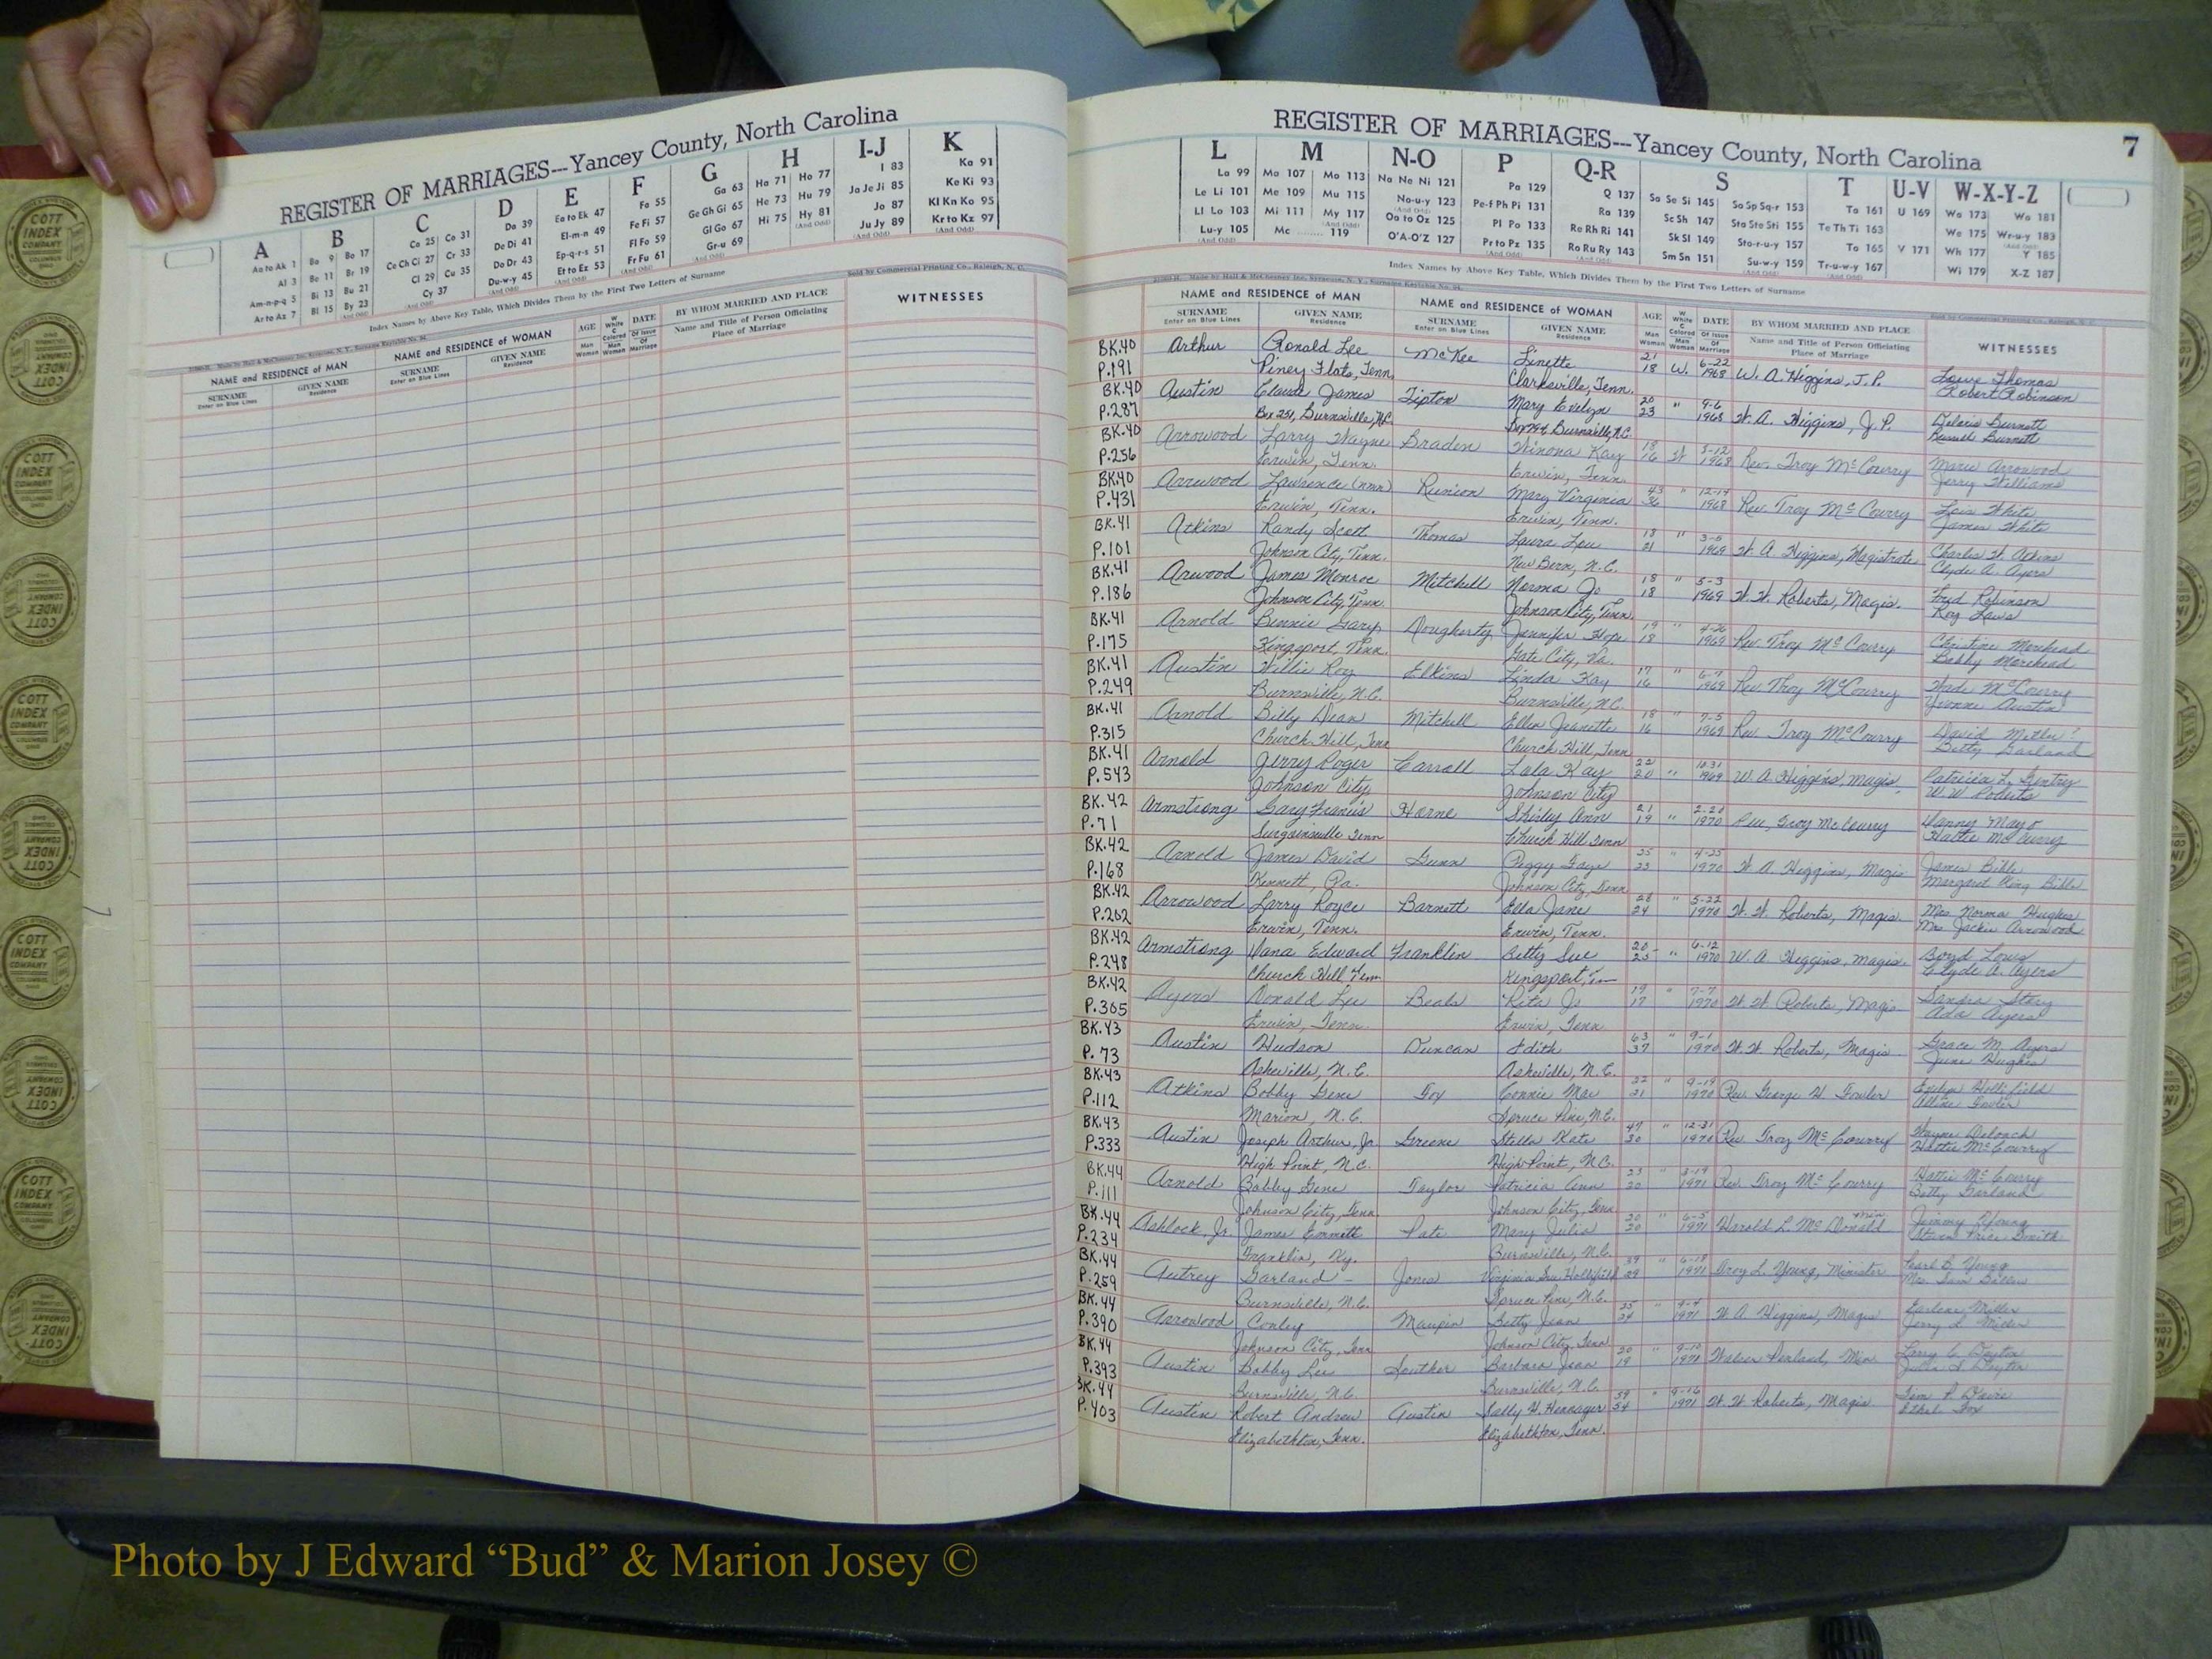 REGISTER OF MARRIAGES---Yancey County, North Carolina
A B C D E F G H I-J K
Aa to Ak 1
Al 3
Am-n-p-q 5
Ar to Az 7
Ba 9 Bo 17
Be 11 Br 19
Bi 13 Bu 21
Bl 15 By 23
Ca 25 Co 31
Ce Ch Ci 27 Cr 33
Cl 29 Cu 35
Cy 37
Da 39
De Di 41
Do Dr 43
Du-w-y 45
Ea to Ek 47
El-m-n 49
Ep-q-r-s 51
Et to Ez 53
Fa 55
Fe Fi 57
Fl Fo 59
Fr Fu 61
Ga 63
Ge Gh Gi 65
Gl Go 67
Gr-u 69
Ha 71 Ho 77
He 73 Hu 79
Hi 75 Hy 81
I 83
Ja Je Ji 85
Jo 87
Ju Jy 89
Ka 91
Ke Ki 93
Kl Kn Ko 95
Kr to Kz 97
Index Names by Above Key Table, Which Divides Them by the First Two Letters of Surname
Sold by Commercial Printing Co., Raleigh, N. C.
NAME and RESIDENCE of MAN
SURNAME
Enter on Blue Lines
GIVEN NAME
Residence
NAME and RESIDENCE of WOMAN
SURNAME
Enter on Blue Lines
GIVEN NAME
Residence
AGE
Man
Woman
W White
C Colored
Man
Woman
DATE
Of Issue
Of Marriage
BY WHOM MARRIED AND PLACE
Name and Title of Person Officiating
Place of Marriage
WITNESSES
REGISTER OF MARRIAGES---Yancey County, North Carolina
7
L M N-O P Q-R S T U-V W-X-Y-Z
La 99
Le Li 101
Ll Lo 103
Lu-y 105
Ma 107 Mo 113
Me 109 Mu 115
Mi 111 My 117
Mc ........ 119
Na Ne Ni 121
No-u-y 123
Oa to Oz 125
O'A-O'Z 127
Pa 129
Pe-f Ph Pi 131
Pl Po 133
Pr to Pz 135
Q 137
Ra 139
Re Rh Ri 141
Ro Ru Ry 143
Sa Se Si 145 So Sp Sq-r 153
Sc Sh 147 Sta Ste Sti 155
Sk Sl 149 Sto-r-u-y 157
Sm Sn 151 Su-w-y 159
Ta 161
Te Th Ti 163
To 165
Tr-u-w-y 167
U 169
V 171
Wa 173 Wo 181
We 175 Wr-u-y 183
Wh 177 Y 185
Wi 179 X-Z 187
Index Names by Above Key Table, Which Divides Them by the First Two Letters of Surname
NAME and RESIDENCE of MAN
SURNAME
Enter on Blue Lines
GIVEN NAME
Residence
NAME and RESIDENCE of WOMAN
SURNAME
Enter on Blue Lines
GIVEN NAME
Residence
AGE
Man
Woman
W White
C Colored
Man
Woman
DATE
Of Issue
Of Marriage
BY WHOM MARRIED AND PLACE
Name and Title of Person Officiating
Place of Marriage
WITNESSES
BK.40 Arthur Ronald Lee McKee Linette 21 6-22 W. A. Higgins, J.P. Thomas
P.191 Piney Flats, Tenn. Clarksville, Tenn. 18 W. 1968 Robert Robinson
BK.40 Austin Claude James Tipton Mary Evelyn 20 " 9-6 W. A. Higgins, J.P. Burnett
P.287 Box 251, Burnsville, N.C. Burnsville, N.C. 23 1968 Burnett
BK.40 Arrowood Larry Wayne Braden Winona Kay 18 W Rev. Troy McCourry Marie Arrowood
P.256 Erwin, Tenn. Erwin, Tenn. 16 1968 Jerry Williams
BK.40 Arrwood Lawrence (nmn) Runion Mary Virginia 43 " 12-14 Rev. Troy McCourry Lois White
P.431 Erwin, Tenn. Erwin, Tenn. 36 1968 James White
BK.41 Atkins Randy Scott Thomas Laura Lou 18 " 3-5 W. A. Higgins, Magistrate Charles W. Atkins
P.101 Johnson City, Tenn. New Bern, N.C. 21 1969 Clyde A. Ayers
BK.41 Arwood James Monroe Mitchell Norma Jo 18 " 5-3 W. W. Roberts, Magis. Ford Robinson
P.186 Johnson City, Tenn. Johnson City, Tenn. 18 1969 Roy Lewis
BK.41 Arnold Bennie Gary Dougherty Jennifer Hope 19 " 4-26 Rev. Troy McCourry Christine Morehead
P.175 Kingsport, Tenn. Gate City, Va. 18 1969 Bobby Morehead
BK.41 Austin Willie Roy Elkins Linda Kay 17 " 6-7 Rev. Troy McCourry Wade McCourry
P.249 Burnsville, N.C. Burnsville, N.C. 16 1969 Yvonne Austin
BK.41 Arnold Billy Dean Mitchell Ellen Jeanette 18 " 7-5 Rev. Troy McCourry David
P.315 Church Hill, Tenn Church Hill, Tenn 16 1969 Betty Garland
BK.41 Arnold Jerry Roger Carroll Lola Kay 22 10-31 W. A. Higgins, Magis. Patricia L. Gentry
P.543 Johnson City Johnson City 20 " 1969 W. W. Roberts
BK.42 Armstrong Gary Francis Horne Shirley Ann 21 2-28 Rev. Troy McCourry Mayo
P.71 Surgoinsville Tenn Church Hill Tenn 19 " 1970 Hattie McCurry
BK.42 Arnold James David Gunn Peggy Faye 25 " 4-25 W. A. Higgins, Magis James Bible
P.168 Kennett, Pa. Johnson City, Tenn 23 1970 Margaret King Bible
BK.42 Arrowood Larry Royce Barnett Ella Jane 28 " 5-22 W. W. Roberts, Magis. Mrs. Norma Hughes
P.202 Erwin, Tenn. Erwin, Tenn. 24 1970 Mrs. Jackie Arrowood
BK.42 Armstrong Dana Edward Franklin Betty Sue 20 6-12 W. A. Higgins, Magis. Boyd Lewis
P.248 Church Hill Tenn Kingsport, Tn 25 " 1970 Clyde A. Ayers
BK.42 Ayers Donald Lee Beals Rita Jo 19 " 7-7 W. W. Roberts, Magis. Sandra Story
P.305 Erwin, Tenn. Erwin, Tenn 17 1970 Ada Ayers
BK.43 Austin Hudson Duncan Edith 63 " 9-1 W. W. Roberts, Magis. Grace M. Ayers
P.73 Asheville, N.C. Asheville, N.C. 37 1970 June Hughes
BK.43 Atkins Bobby Gene Fox Connie Mae 22 " 9-19 Rev. George W. Fowler Evelyn Hollifield
P.112 Marion, N.C. Spruce Pine, N.C. 21 1970 Fowler
BK.43 Austin Joseph Arthur, Jr. Greene Stella Kate 47 " 12-31 Rev. Troy McCourry Wayne DeLoach
P.333 High Point, N.C. High Point, N.C. 30 1970 Hattie McCourry
BK.44 Arnold Bobby Gene Taylor Patricia Ann 23 " 3-19 Rev. Troy McCourry Hattie McCurry
P.111 Johnson City, Tenn Johnson City, Tenn 20 1971 Betty Garland
BK.44 Ashlock, Jr. James Emmett Pate Mary Julia 20 " 6-5 Harold L. McDonald Min. Jimmy Young
P.234 Franklin, Ky. Burnsville, N.C. 20 1971 Price Smith
BK.44 Autrey Garland - Jones Virginia Sue Hollifield 39 " 6-18 Troy L. Young, Minister Pearl B. Young
P.259 Burnsville, N.C. Spruce Pine, N.C. 29 1971 Mrs.
BK.44 Arrowood Conley Maupin Betty Jean 25 " 9-4 W. A. Higgins, Magis Earlene Miller
P.390 Johnson City, Tenn Johnson City, Tenn 24 1971 Jerry L. Miller
BK.44 Austin Bobby Lee Souther Barbara Jean 20 " 9-10 Min. Larry C. Deyton
P.393 Burnsville, N.C. Burnsville, N.C. 19 1971 Deyton
BK.44 Austin Robert Andrew Austin Sally H. Hensager 59 " 9-16 W. W. Roberts, Magis Davis
P.403 Elizabethton, Tenn. Elizabethton, Tenn. 54 1971 Ethel Fox
COTT
INDEX
COMPANY
COLUMBUS
OHIO
Photo by J Edward “Bud” & Marion Josey ©